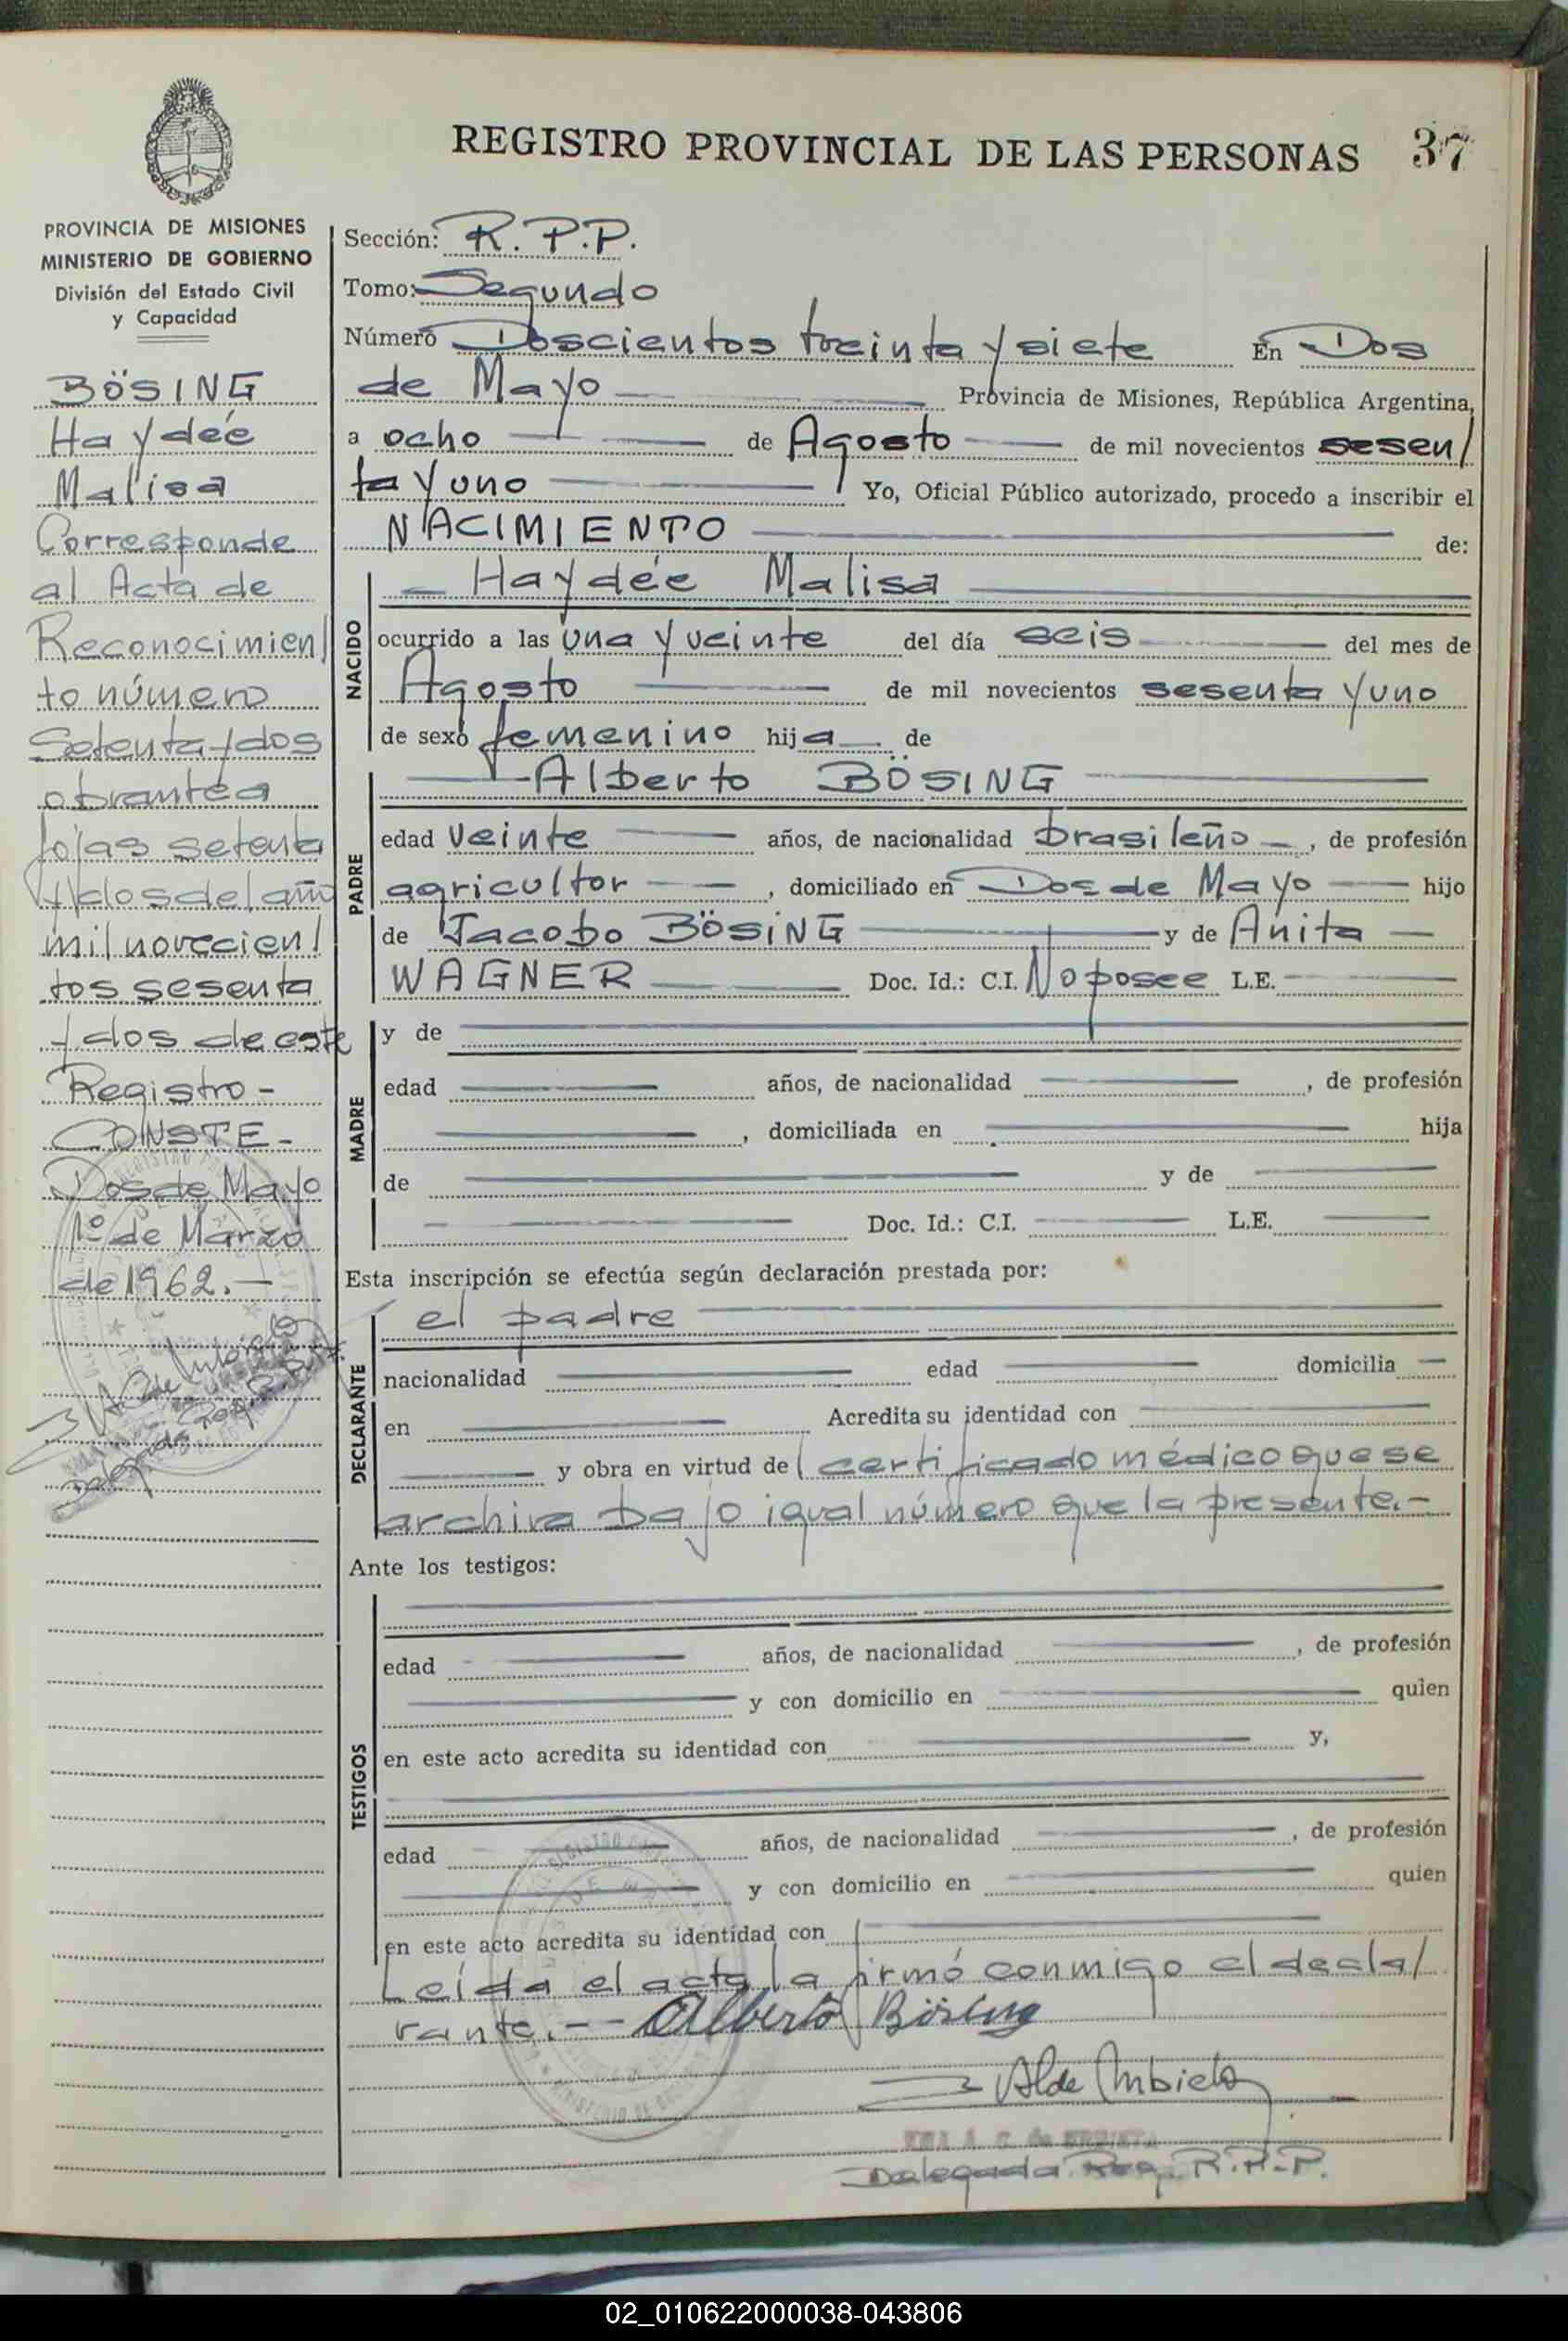 REGISTRO PROVINCIAL DE LAS PERSONAS 37
PROVINCIA DE MISIONES
MINISTERIO DE GOBIERNO
División del Estado Civil
y Capacidad
BÖSING
Haydeé
Malisa
Corresponde
al Acta de
Reconocimien/
to número
Setenta y dos
obrante a
fojas setenta
y dos del año
mil novecien/
tos sesenta
y dos de este
Registro-
CONSTE-
Dos de Mayo
1º de Marzo
de 1962.-
Sección: R. P. P.
Tomo: Segundo
Número Doscientos treinta y siete En Dos
de Mayo Provincia de Misiones, República Argentina,
a ocho de Agosto de mil novecientos sesen/
ta y uno Yo, Oficial Público autorizado, procedo a inscribir el
NACIMIENTO de:
NACIDO
Haydée Malisa
ocurrido a las una y veinte del día seis del mes de
Agosto de mil novecientos sesenta y uno
de sexo femenino hija de
PADRE
Alberto BÖSING
edad veinte años, de nacionalidad brasileño, de profesión
agricultor, domiciliado en Dos de Mayo hijo
de Jacobo BÖSING y de Anita
WAGNER Doc. Id.: C.I. No posee L.E.
MADRE
y de
edad años, de nacionalidad , de profesión
, domiciliada en hija
de y de
Doc. Id.: C.I. L.E.
Esta inscripción se efectúa según declaración prestada por:
DECLARANTE
el padre
nacionalidad edad domicilia
en Acredita su identidad con
y obra en virtud del certificado médico que se
archiva bajo igual número que la presente.-
Ante los testigos:
TESTIGOS
edad años, de nacionalidad , de profesión
y con domicilio en quien
en este acto acredita su identidad con y,
edad años, de nacionalidad , de profesión
y con domicilio en quien
en este acto acredita su identidad con
Leída el acta, la firmó conmigo el decla/
rante.-- Alberto Bösing
Delegada Reg. R.P.P.
02_010622000038-043806